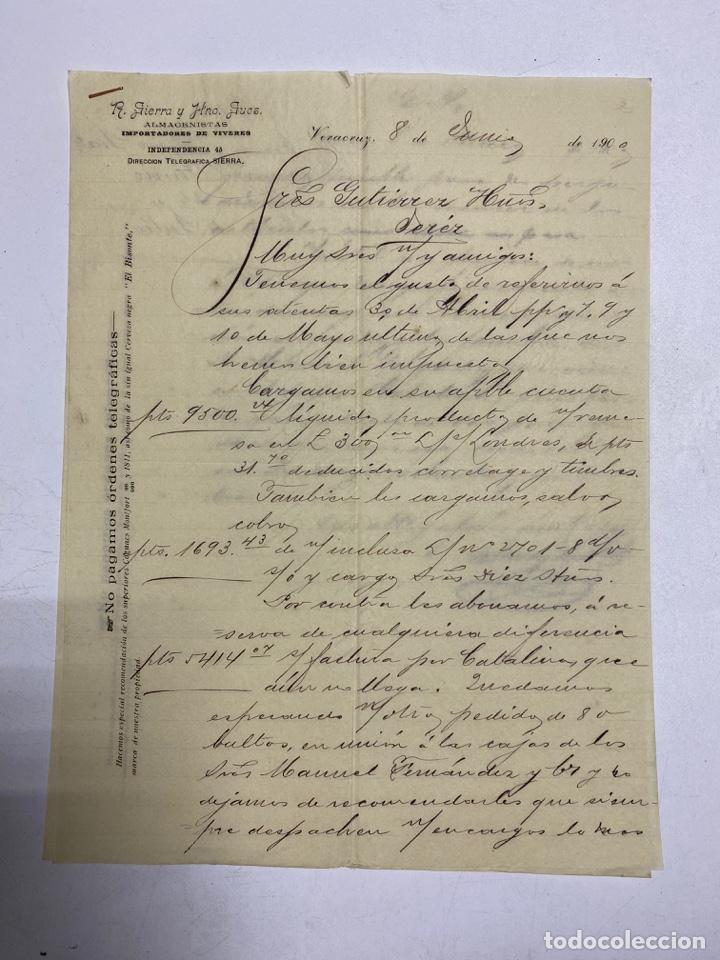 R. Sierra y Hno. Sucs.
ALMACENISTAS
IMPORTADORES DE VIVERES
INDEPENDENCIA 45
DIRECCION TELEGRAFICA SIERRA.
Veracruz, 8 de Junio de 1900
Sres Gutiérrez Hnos.
Jeréz
Muy Sres n/ y amigos:
Tenemos el gusto de referirnos á
sus atentas 30 de Abril pp. y 7, 9 y
10 de Mayo ultimo de las que nos
hemos bien impuesto.
Cargamos en su apble cuenta
pts 9500. liquido producto de n/ reme-
sa en £ 300 L/ s/ Londres, de pts
31.70 deducidos corretage y timbres.
Tambien les cargamos, salvo
cobro,
pts. 1693.43 de n/ inclusa L/ nº 2701-8 d/v
s/o y cargo Sres Diez Hnos.
Por contra les abonamos, á re-
serva de cualquiera diferencia
pts 5414.07 s/ factura por Catalina, que
aún no llega. Quedamos
esperando n/ otro pedido de 80
bultos, en unión á las cajas de los
Sres Manuel Fernández y Cª y no
dejamos de recomendarles que siem-
pre despachen n/ encargos lo mas
No pagamos órdenes telegráficas
Hacemos especial recomendación de los superiores Cognacs Monifort y 1811, así como de la sin igual Cerveza negra "El Bisonte,"
marca de nuestra propiedad.
todocoleccion
todocoleccion.net